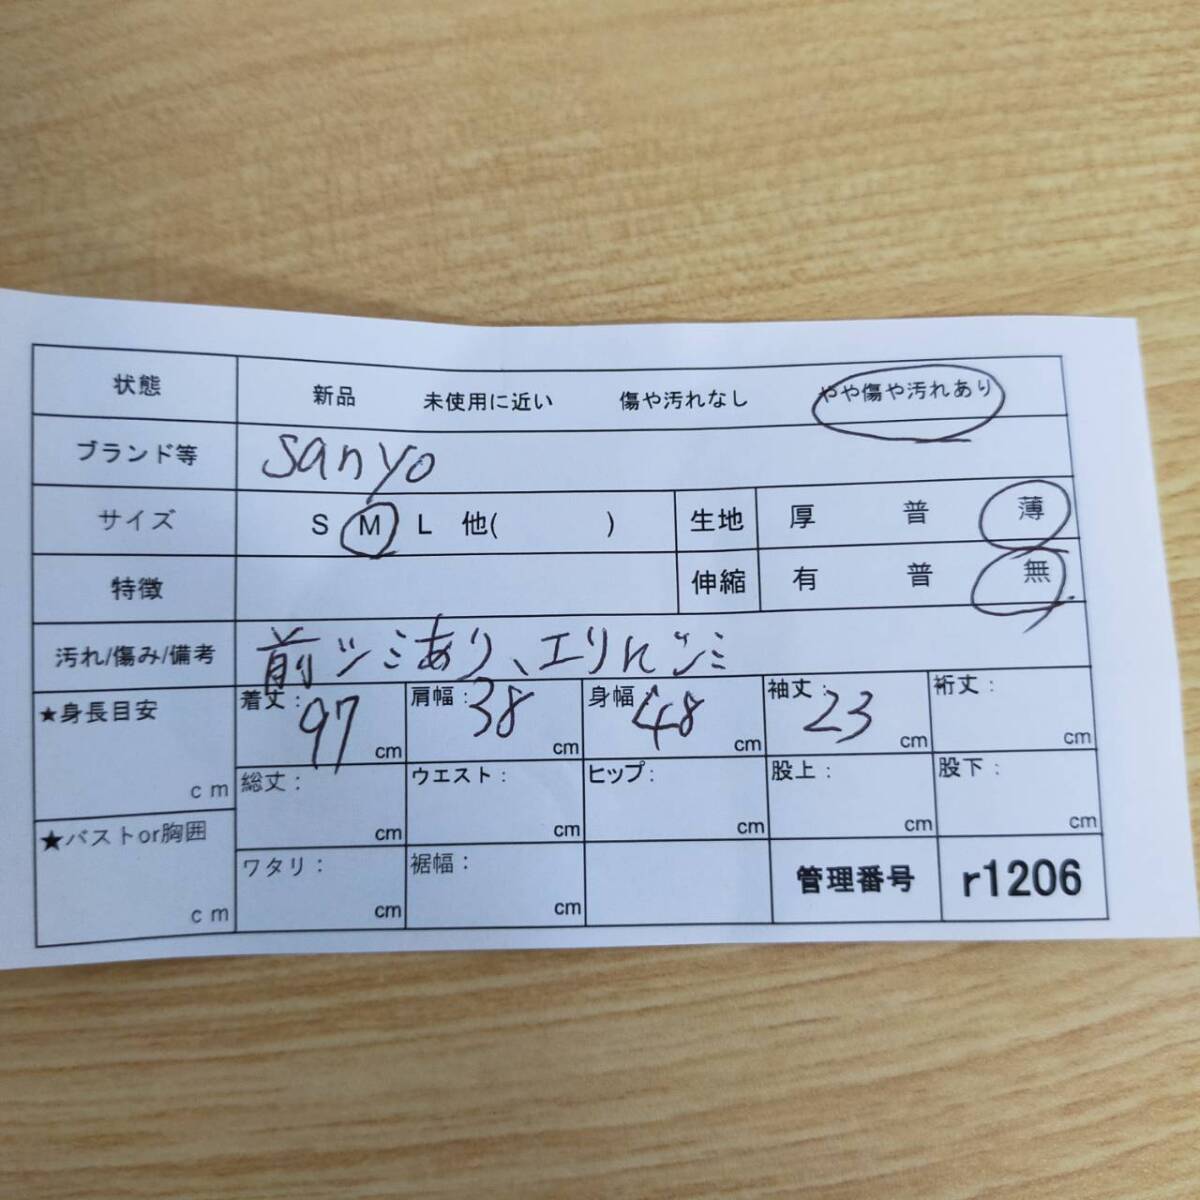 状態 新品 未使用に近い 傷や汚れなし やや傷や汚れあり
ブランド等 sanyo
サイズ S M L 他( ) 生地 厚 普 薄
特徴 伸縮 有 普 無
汚れ/傷み/備考 前シミあり、エリにシミ
★身長目安 cm 着丈:97cm 肩幅:38cm 身幅:48cm 袖丈:23cm 裄丈:cm
総丈:cm ウエスト:cm ヒップ:cm 股上:cm 股下:cm
★バストor胸囲 cm ワタリ:cm 裾幅:cm 管理番号 r1206